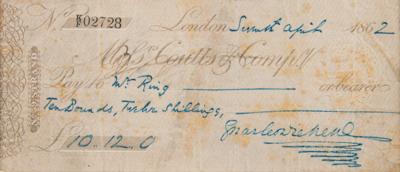 No. 02728 London Seventh April 1862
Messrs. Coutts & Compy.
Pay to Mr Ring or bearer
Ten Pounds, Twelve Shillings,
£10.12.0 Charles Dickens